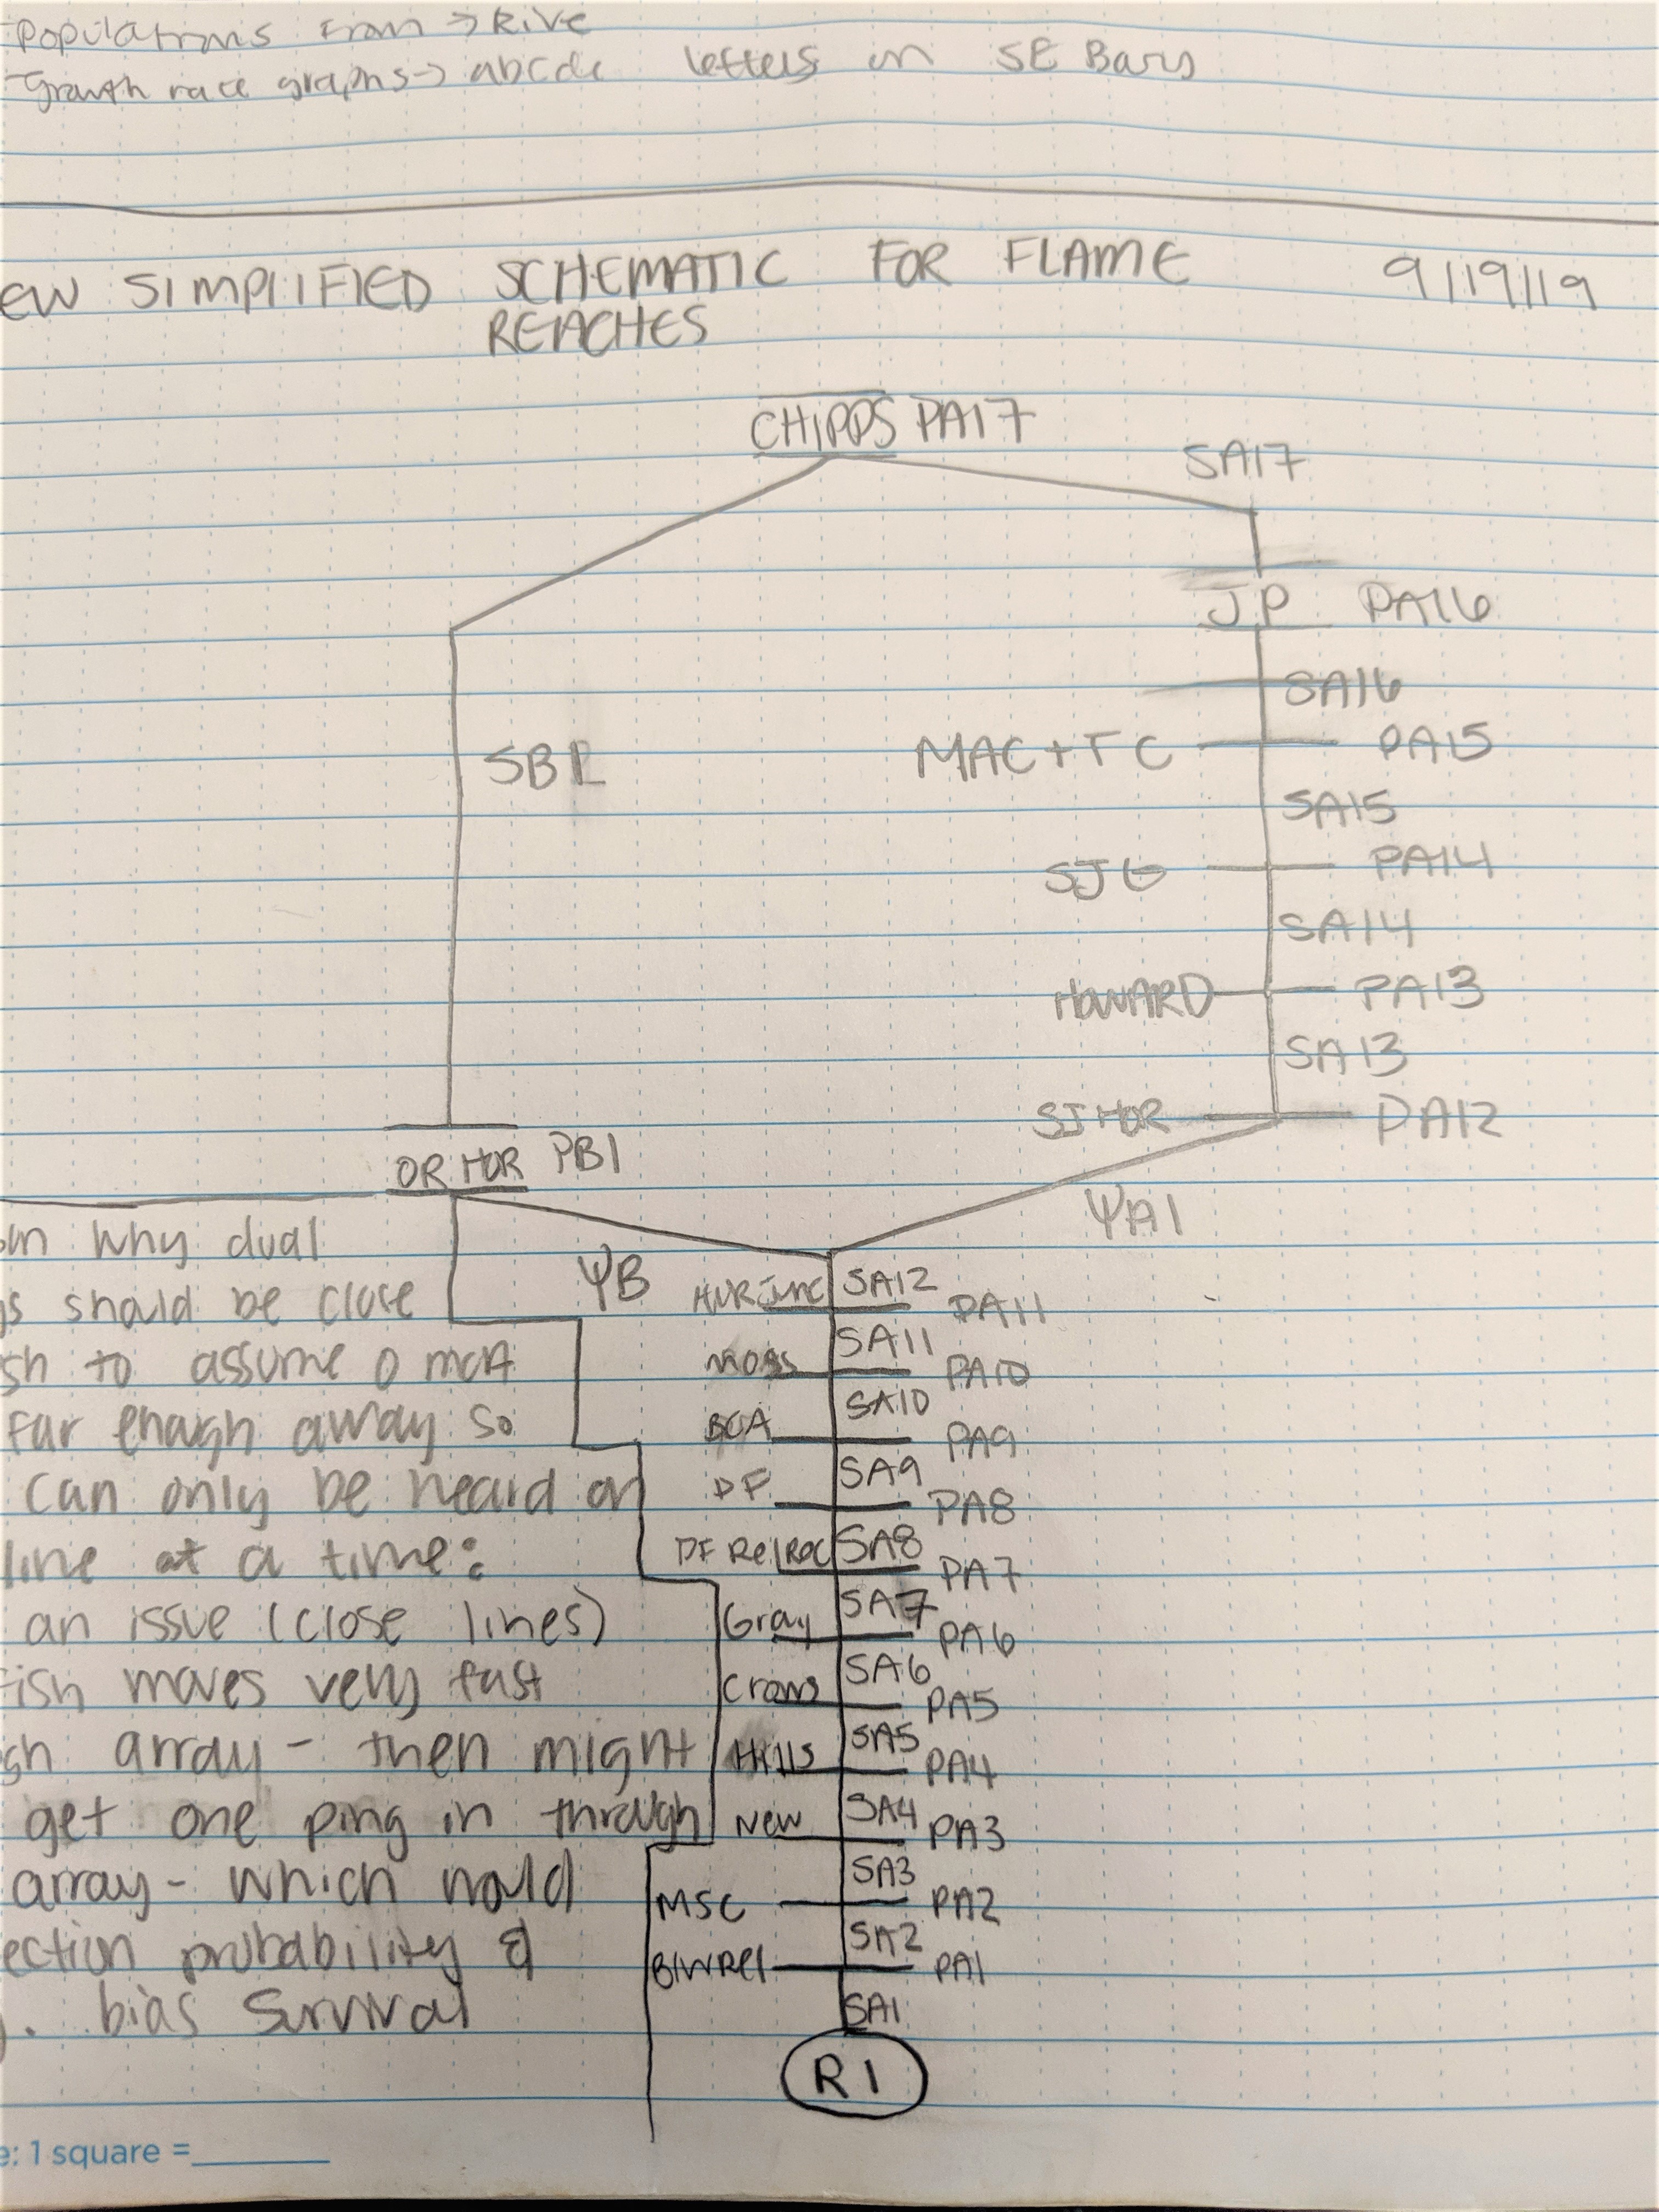 -Populations from → Rive
-Growth rate graphs → abcde letters on SE Bars
EW SIMPLIFIED SCHEMATIC FOR FLAME 9/19/19
REACHES
CHIPPS PA17
SA17
JP PA16
SA16
MAC+TC PA15
SBL SA15
SJG PA14
SA14
HOWARD PA13
SA13
SJ HOR PA12
OR HOR PB1
ΨA1
ΨB
SA12
HOR Junc PA11
SA11
Moss PA10
SA10
BCA PA9
SA9
DF PA8
SA8
DF Rel Rec PA7
SA7
Gray PA6
SA6
Crows PA5
SA5
Hills PA4
SA4
New PA3
SA3
MSC PA2
SA2
BlwRel PA1
SA1
R1
on why dual
gs should be close
sh to assume 0 mort
far enough away so
can only be heard on
line at a time:
an issue (close lines)
fish moves very fast
gh array - then might
get one ping in through
array - which would
ection probability &
). bias Survival
e: 1 square =